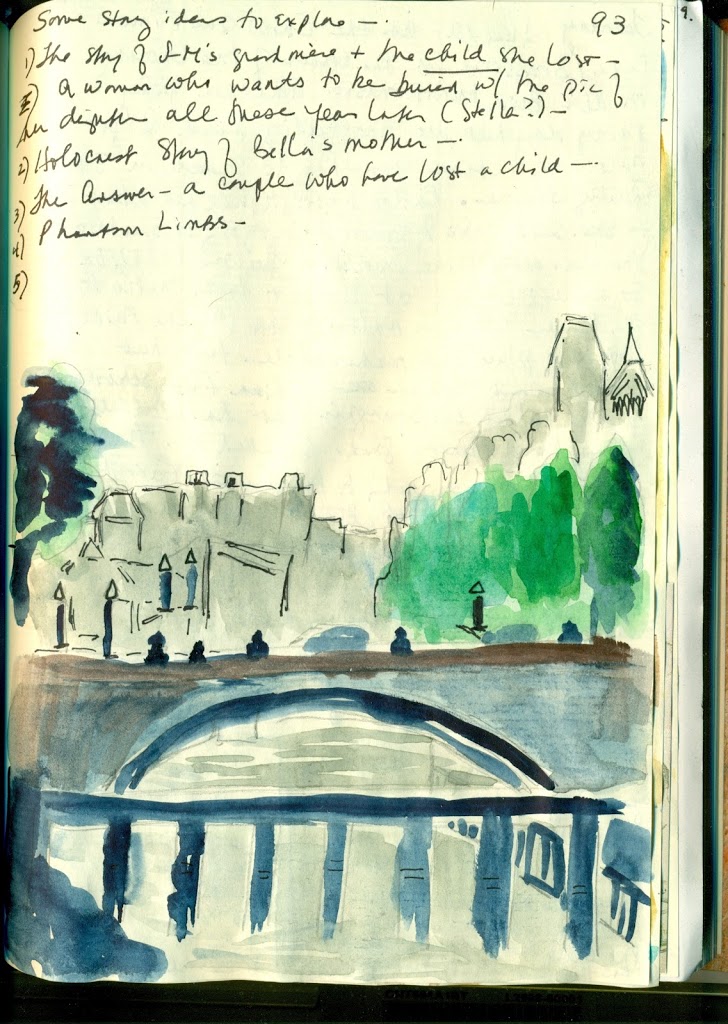 Some story ideas to explore —. 93
1) The story of J-M's grandmère + the child she lost —
2) A woman who wants to be buried w/ the pic of
her daughter all these years later (Stella?) —
2) Holocaust Story of Bella's mother —.
3) The Answer — a couple who have lost a child —.
4) Phantom Limbs —
5)
9.